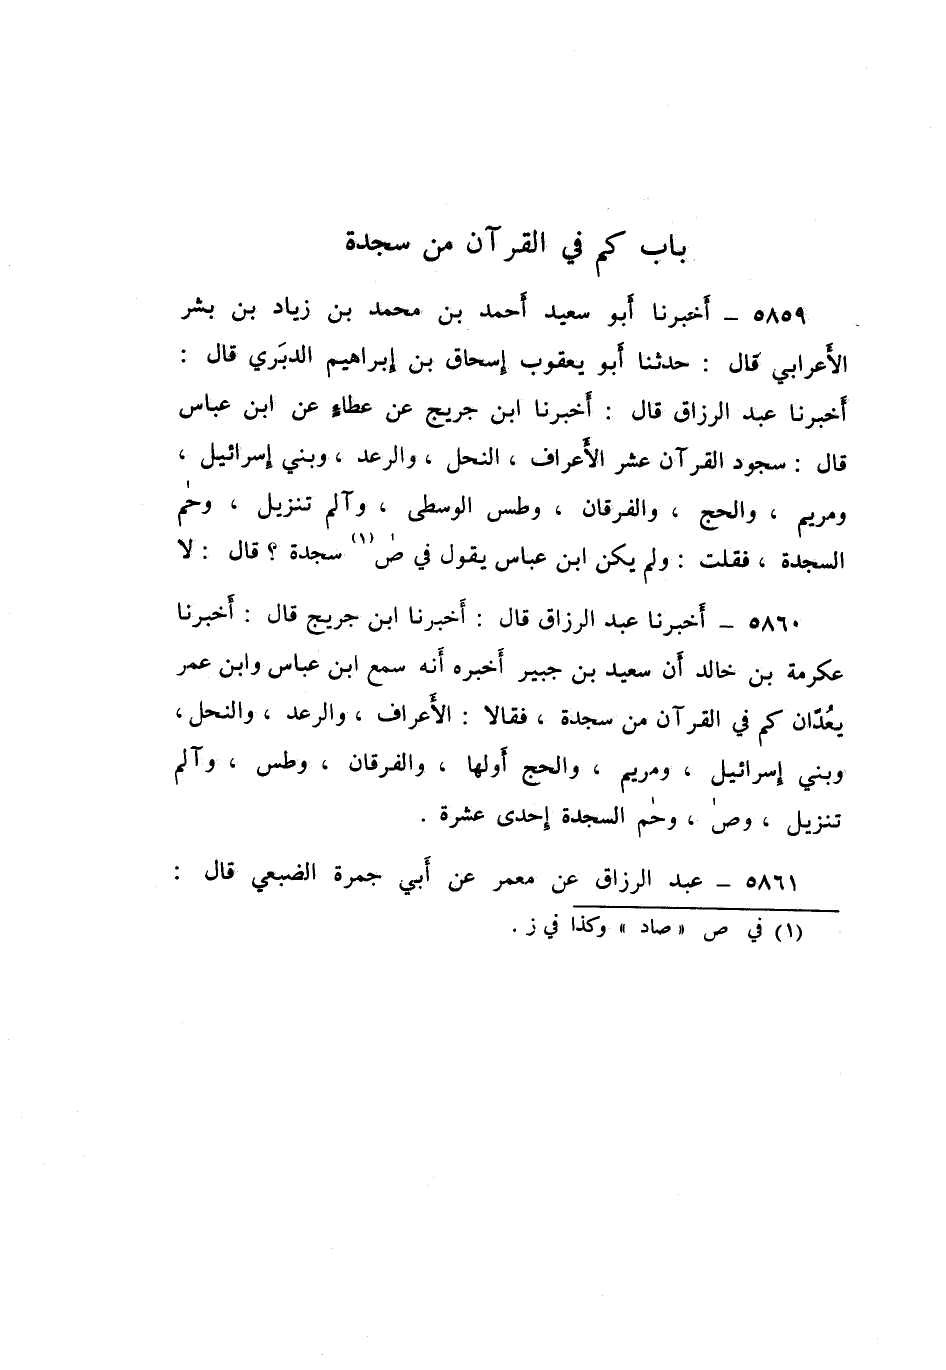 باب كم في القرآن من سجدة
٥٨٥٩ – أَخبرنا أَبو سعيد أَحمد بن محمد بن زياد بن بشر
الأَعرابي قال : حدثنا أَبو يعقوب إِسحاق بن إِبراهيم الدبَري قال :
أَخبرنا عبد الرزاق قال : أَخبرنا ابن جريج عن عطاءٍ عن ابن عباس
قال : سجود القرآن عشر الأَعراف ، النحل ، والرعد ، وبني إِسرائيل ،
ومريم ، والحج ، والفرقان ، وطس الوسطى ، وآلم تنزيل ، وحٰم
السجدة ، فقلت : ولم يكن ابن عباس يقول في صٰ (١) سجدة ؟ قال : لا
٥٨٦٠ – أَخبرنا عبد الرزاق قال : أَخبرنا ابن جريج قال : أَخبرنا
عكرمة بن خالد أَن سعيد بن جبير أَخبره أَنه سمع ابن عباس وابن عمر
يعُدّان كم في القرآن من سجدة ، فقالا : الأَعراف ، والرعد ، والنحل ،
وبني إِسرائيل ، ومريم ، والحج أَولها ، والفرقان ، وطس ، وآلم
تنزيل ، وصٰ ، وحٰم السجدة إِحدى عشرة .
٥٨٦١ – عبد الرزاق عن معمر عن أَبي جمرة الضبعي قال :
(١) في ص « صاد » وكذا في ز .